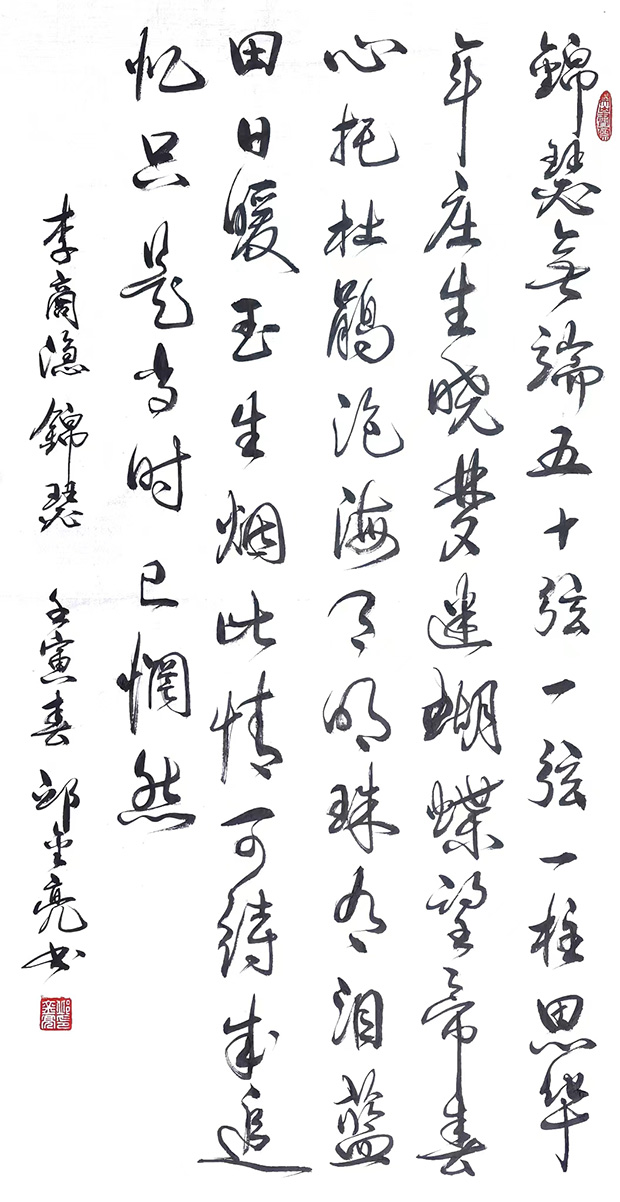 錦瑟無端五十弦一弦一柱思华
年庄生晓梦迷蝴蝶望帝春
心托杜鹃沧海月明珠有泪蓝
田日暖玉生烟此情可待成追
忆只是当时已惘然
李商隐錦瑟 壬寅春 邱金亮书